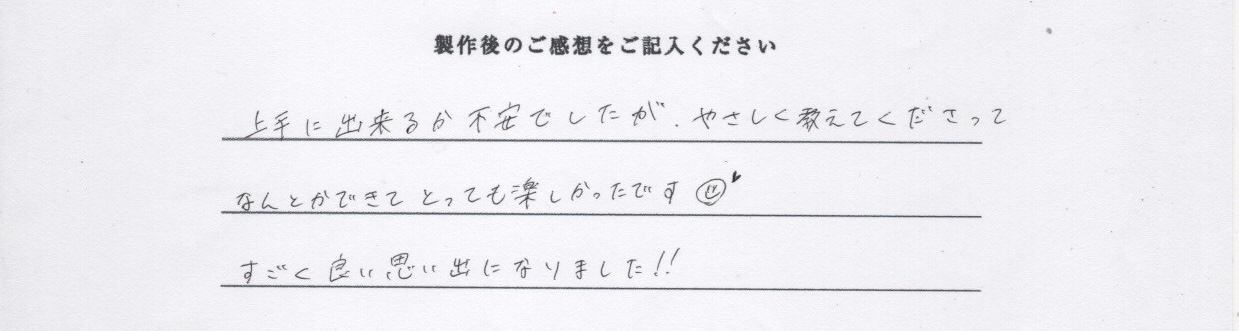 製作後のご感想をご記入ください
上手に出来るか不安でしたが、やさしく教えてくださって
なんとかできてとっても楽しかったです
すごく良い思い出になりました!!